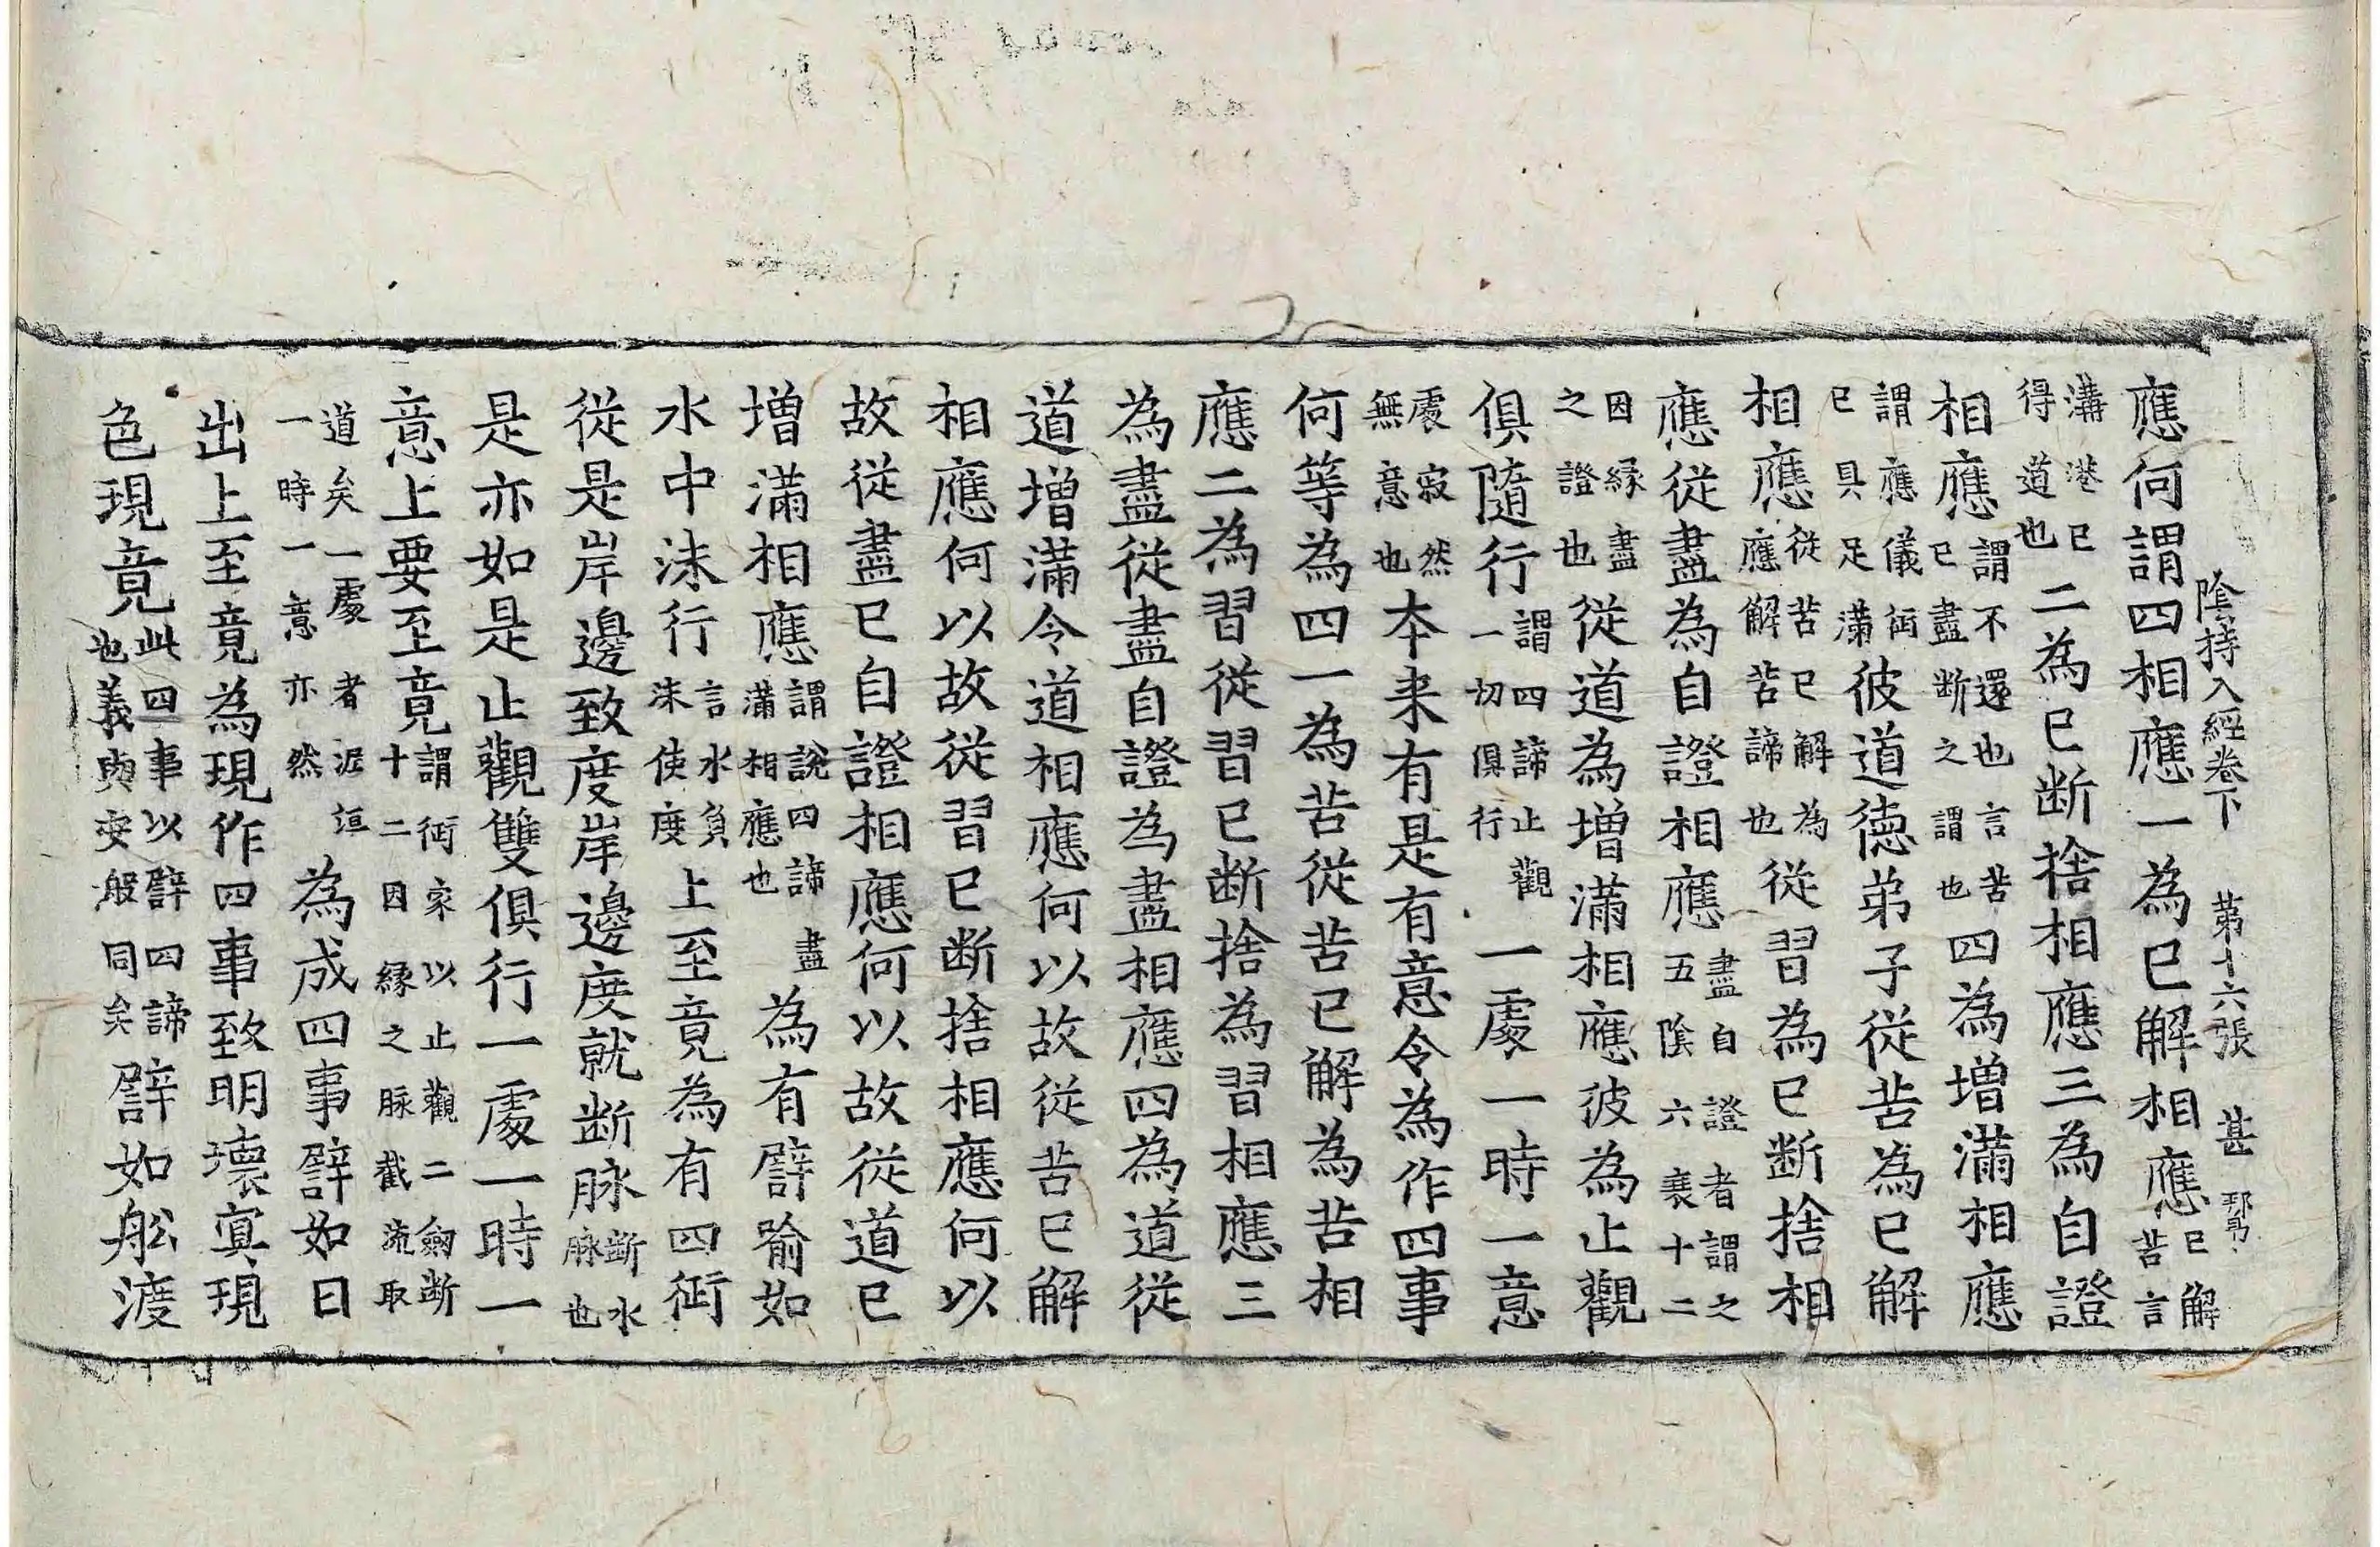 陰持入經卷下 第十六張 甚
應何謂四相應一為已解相應已解苦言
溝港已得道也二為已断捨相應三為自證
相應謂不還也言苦已盡断之謂也四為增滿相應
謂應儀衍已具足滿彼道德弟子從苦為已解
相應從苦已解為應解苦諦也從習為已断捨相
應從盡為自證相應盡自證者謂之五陰六衰十二
因緣盡之證也從道為增滿相應彼為止觀
俱隨行謂四諦止觀一切俱行一處一時一意
處寂然無意也本来有是有意令為作四事
何等為四一為苦從苦已解為苦相
應二為習從習已断捨為習相應三
為盡從盡自證為盡相應四為道從
道增滿令道相應何以故從苦已解
相應何以故從習已断捨相應何以
故從盡已自證相應何以故從道已
增滿相應謂說四諦盡滿相應也為有譬喻如
水中沫行言水負沫使度上至竟為有四衍
從是岸邊致度岸邊度就断脉断水脉也
是亦如是止觀雙俱行一處一時一
意上要至竟謂衍家以止觀二劒断十二因緣之脉截流取
道矣一處者泥洹一時一意亦然為成四事譬如日
出上至竟為現作四事致明壞冥現
色現竟此四事以譬四諦也義與安般同矣譬如舩渡